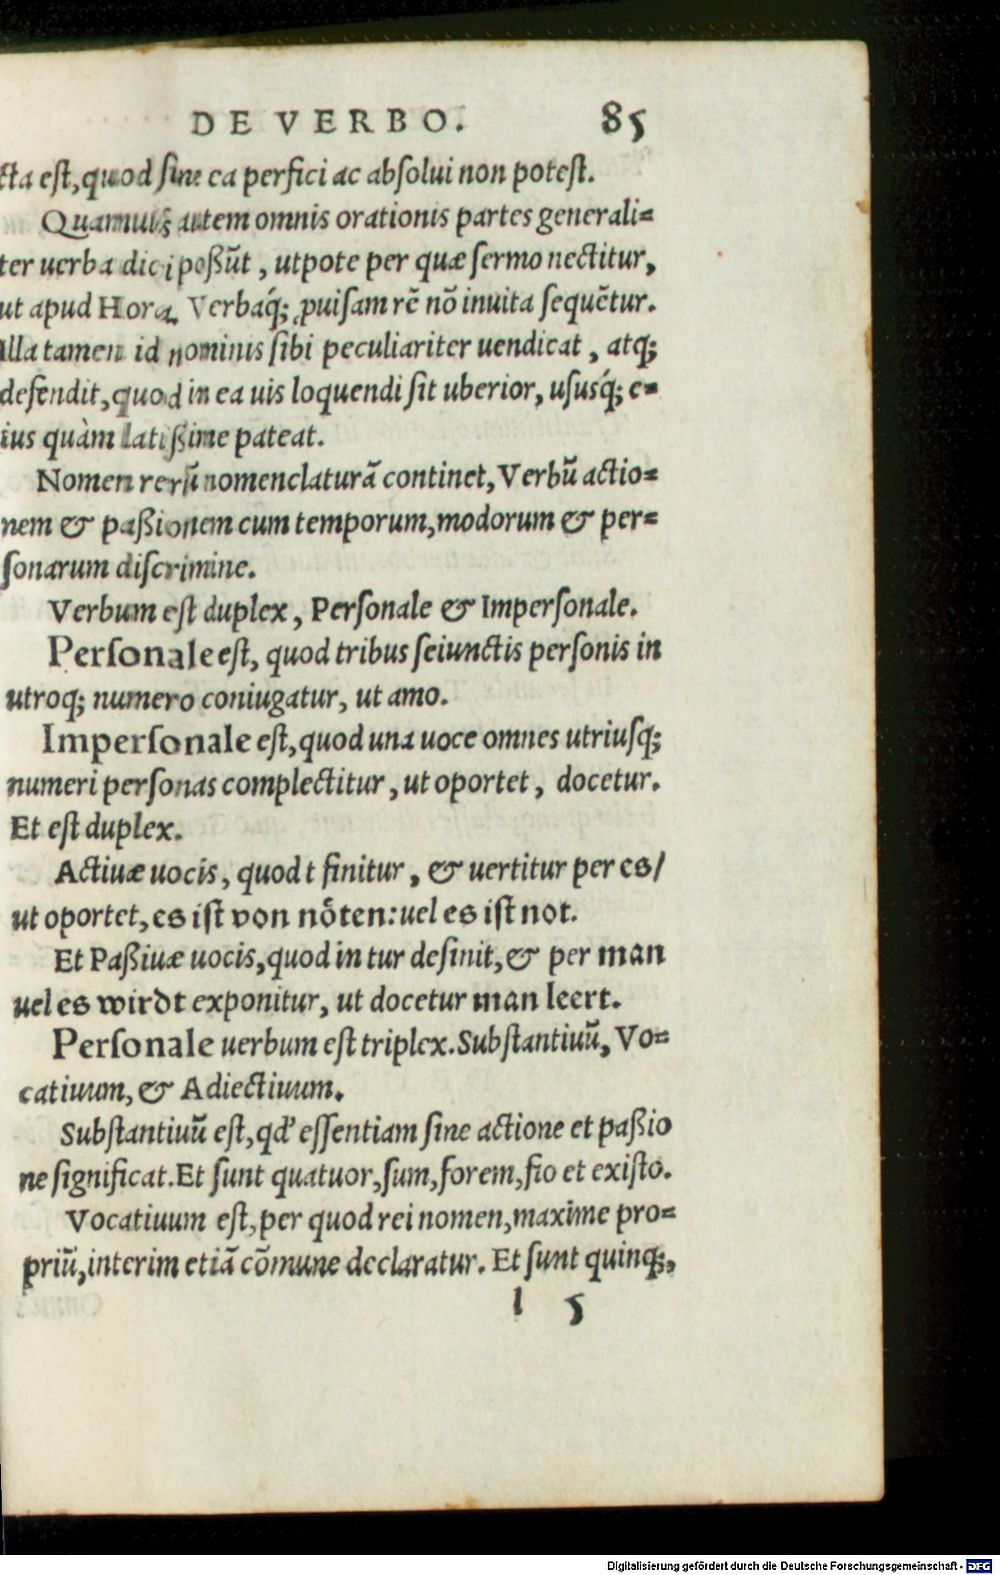 DE VERBO. 85
cta est, quod sine ea perfici ac absolui non potest.
Quamuis autem omnis orationis partes generali=
ter uerba dici poßūt, utpote per quæ sermo nectitur,
ut apud Hora. Verbaq́; ꝓuisam rē nō inuita sequētur.
illa tamen id nominis sibi peculiariter uendicat, atq;
defendit, quod in ea uis loquendi sit uberior, ususq́; e=
ius quàm latißime pateat.
Nomen rerū nomenclaturā continet, Verbū actio=
nem & paßionem cum temporum, modorum & per=
sonarum discrimine.
Verbum est duplex, Personale & Impersonale.
Personale est, quod tribus seiunctis personis in
utroq; numero coniugatur, ut amo.
Impersonale est, quod una uoce omnes utriusq;
numeri personas complectitur, ut oportet, docetur.
Et est duplex.
Actiuæ uocis, quod t finitur, & uertitur per es/
ut oportet, es ist von nöten: uel es ist not.
Et Paßiuæ uocis, quod in tur desinit, & per man
uel es wirdt exponitur, ut docetur man leert.
Personale uerbum est triplex. Substantiuū, Vo=
catiuum, & Adiectiuum.
Substantiuū est, qd' essentiam sine actione et paßio
ne significat. Et sunt quatuor, sum, forem, fio et existo.
Vocatiuum est, per quod rei nomen, maxime pro=
priū, interim etiā cōmune declaratur. Et sunt quinq;,
l 5
Digitalisierung gefördert durch die Deutsche Forschungsgemeinschaft - DFG